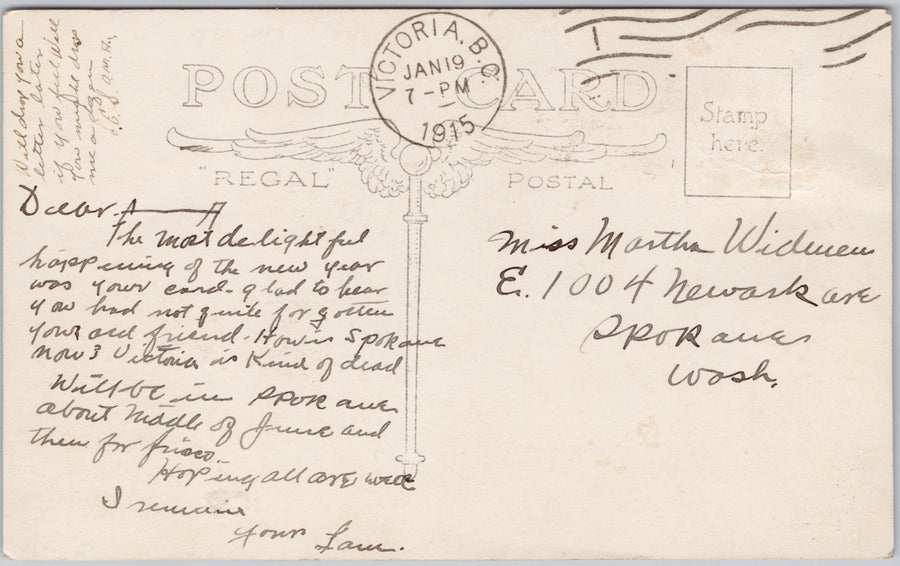 Will drop you a
letter later
if you feel like
you might drop
me a
POST CARD
VICTORIA, B.C.
JAN 19
7-PM
1915
Stamp
here.
"REGAL" POSTAL
Dear
The most delightful
happening of the new year
was your card. glad to hear
you had not quite forgotten
your old friend. How is Spokane
now? Victoria is kind of dead
Will be in Spokane
about Middle of June and
then for frisco.
Hoping all are well
I remain
your Sam.
Miss Martha Widmen
E. 1004 Newark ave
Spokane
Wash.